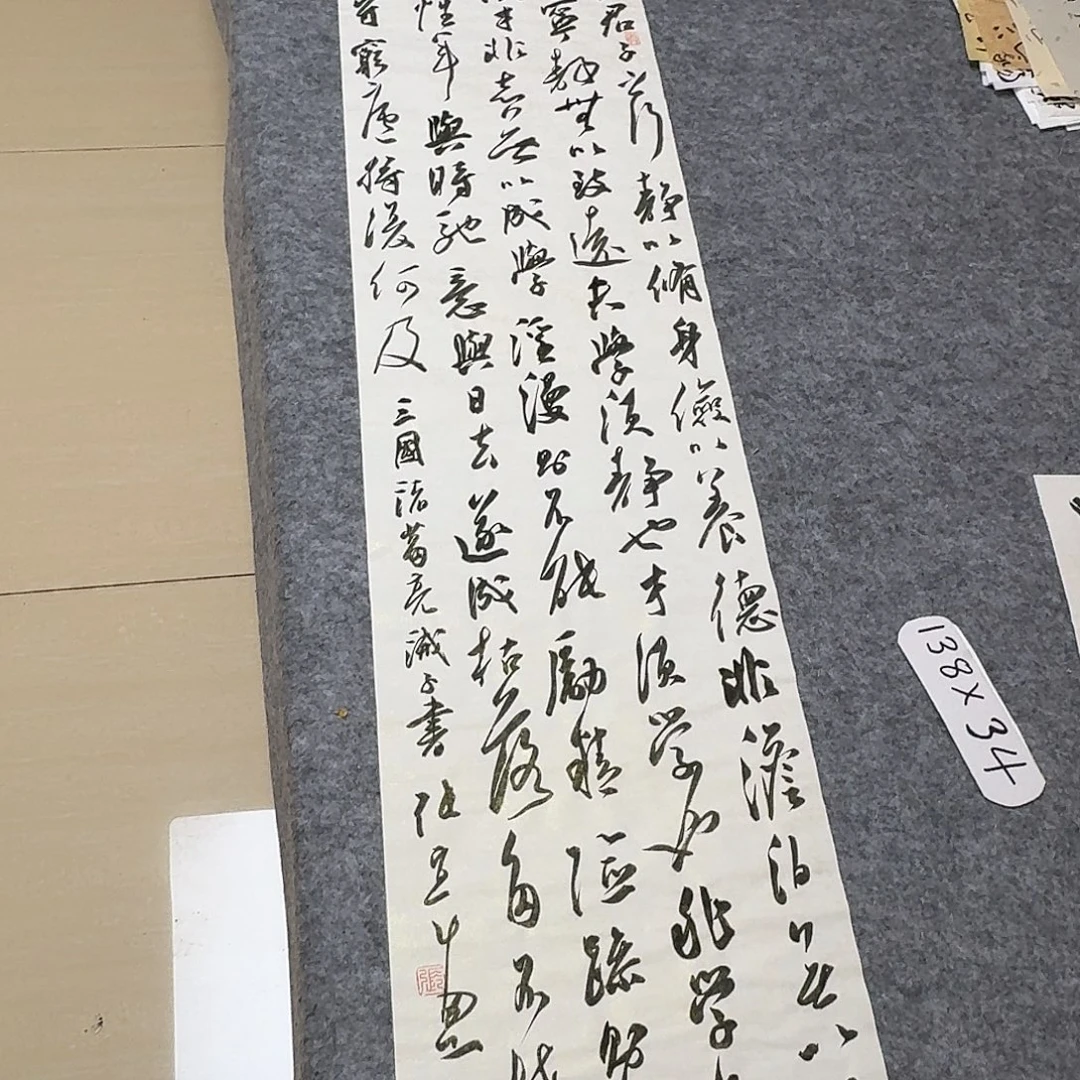 君子之行静以脩身儉以養德非澹泊無以
寧静無以致遠夫學須静也才須学也非學
才非志無以成學淫漫則不能勵精險躁則
性年與時馳意與日去遂成枯落多不
守窮廬將復何及
三國諸葛亮誡子書
138×34